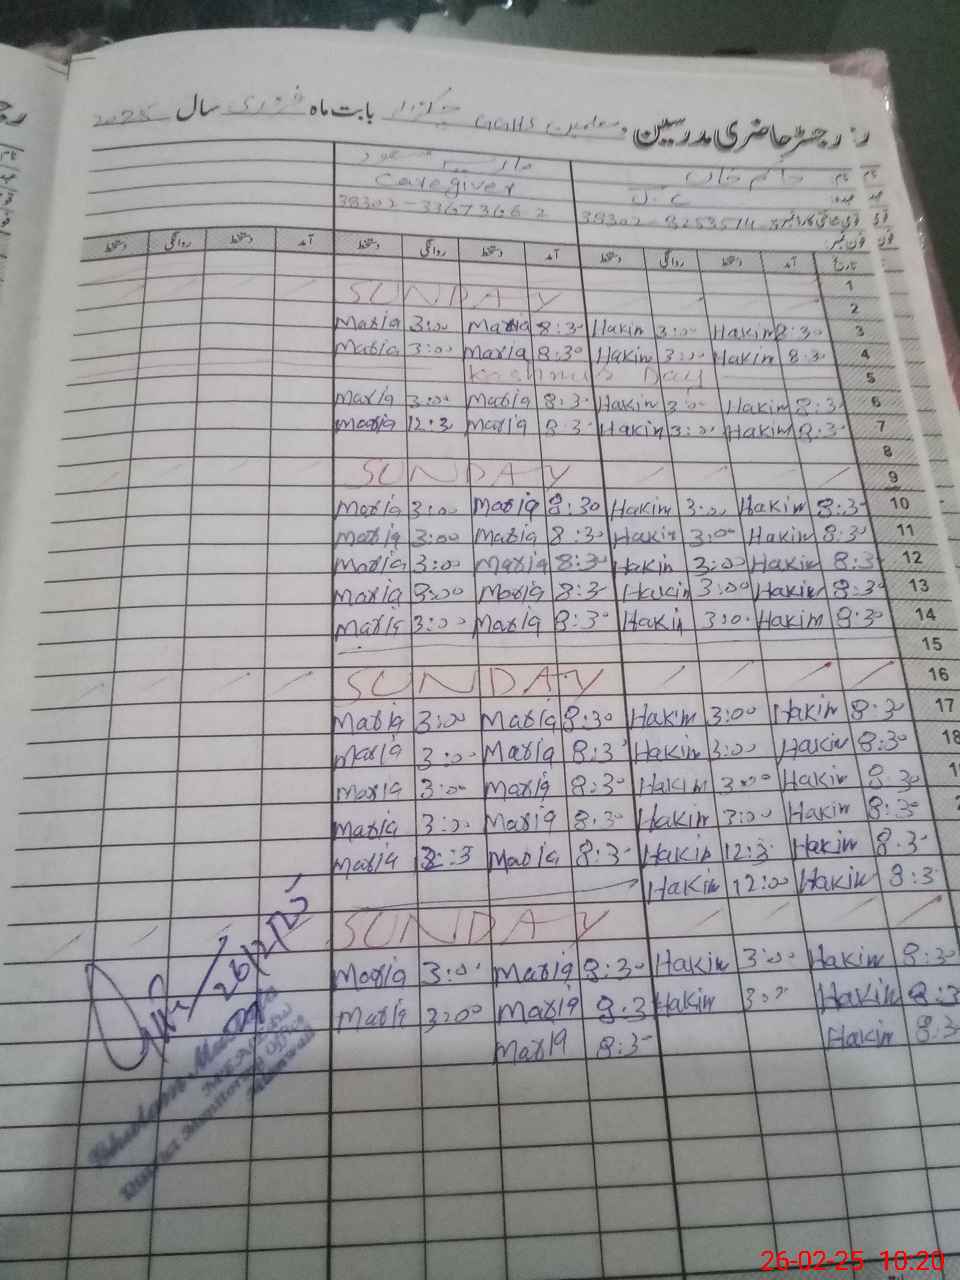 رجسٹر حاضری مدرسین و معلمین GGHS بابت ماہ فروری سال 2025
نام حاکم خان
عہدہ
Caregiver
قومی شناختی کارڈ نمبر
فون نمبر
تاریخ آمد دستخط روانگی دستخط آمد دستخط روانگی دستخط آمد دستخط روانگی دستخط
1
SUNDAY 2
Maria 3:00 Maria 8:30 Hakim 3:00 Hakim 8:30 3
Maria 3:00 Maria 8:30 Hakim 3:00 Hakim 8:30 4
Kashmir Day 5
Maria 3:00 Maria 8:3 Hakim 3:0 Hakim 8:3 6
Maria 12:3 Maria 8:3 Hakim 3:0 Hakim 8:3 7
8
SUNDAY 9
Maria 3:00 Maria 8:30 Hakim 3:00 Hakim 8:3 10
Maria 3:00 Maria 8:30 Hakim 3:00 Hakim 8:30 11
Maria 3:00 Maria 8:30 Hakim 3:00 Hakim 8:3 12
Maria 3:00 Maria 8:3 Hakim 3:00 Hakim 8:30 13
Maria 3:00 Maria 8:30 Hakim 3:0 Hakim 8:30 14
15
SUNDAY 16
Maria 3:00 Maria 8:30 Hakim 3:00 Hakim 8:30 17
Maria 3:00 Maria 8:3 Hakim 3:00 Hakim 8:30 18
Maria 3:00 Maria 8:30 Hakim 3:00 Hakim 8:30
Maria 3:00 Maria 8:30 Hakim 3:00 Hakim 8:30
Maria Maria 8:30 Hakim 12:3 Hakim 8:30
Hakim 12:00 Hakim 8:3
SUNDAY
Maria 3:0 Maria 8:30 Hakim 3:00 Hakim 8:30
Maria 3:00 Maria 8:3 Hakim 3:00 Hakim 8:3
Maria 8:3 Hakim 8:3
26/2/25
District Monitoring Officer
26-02-25 10:20